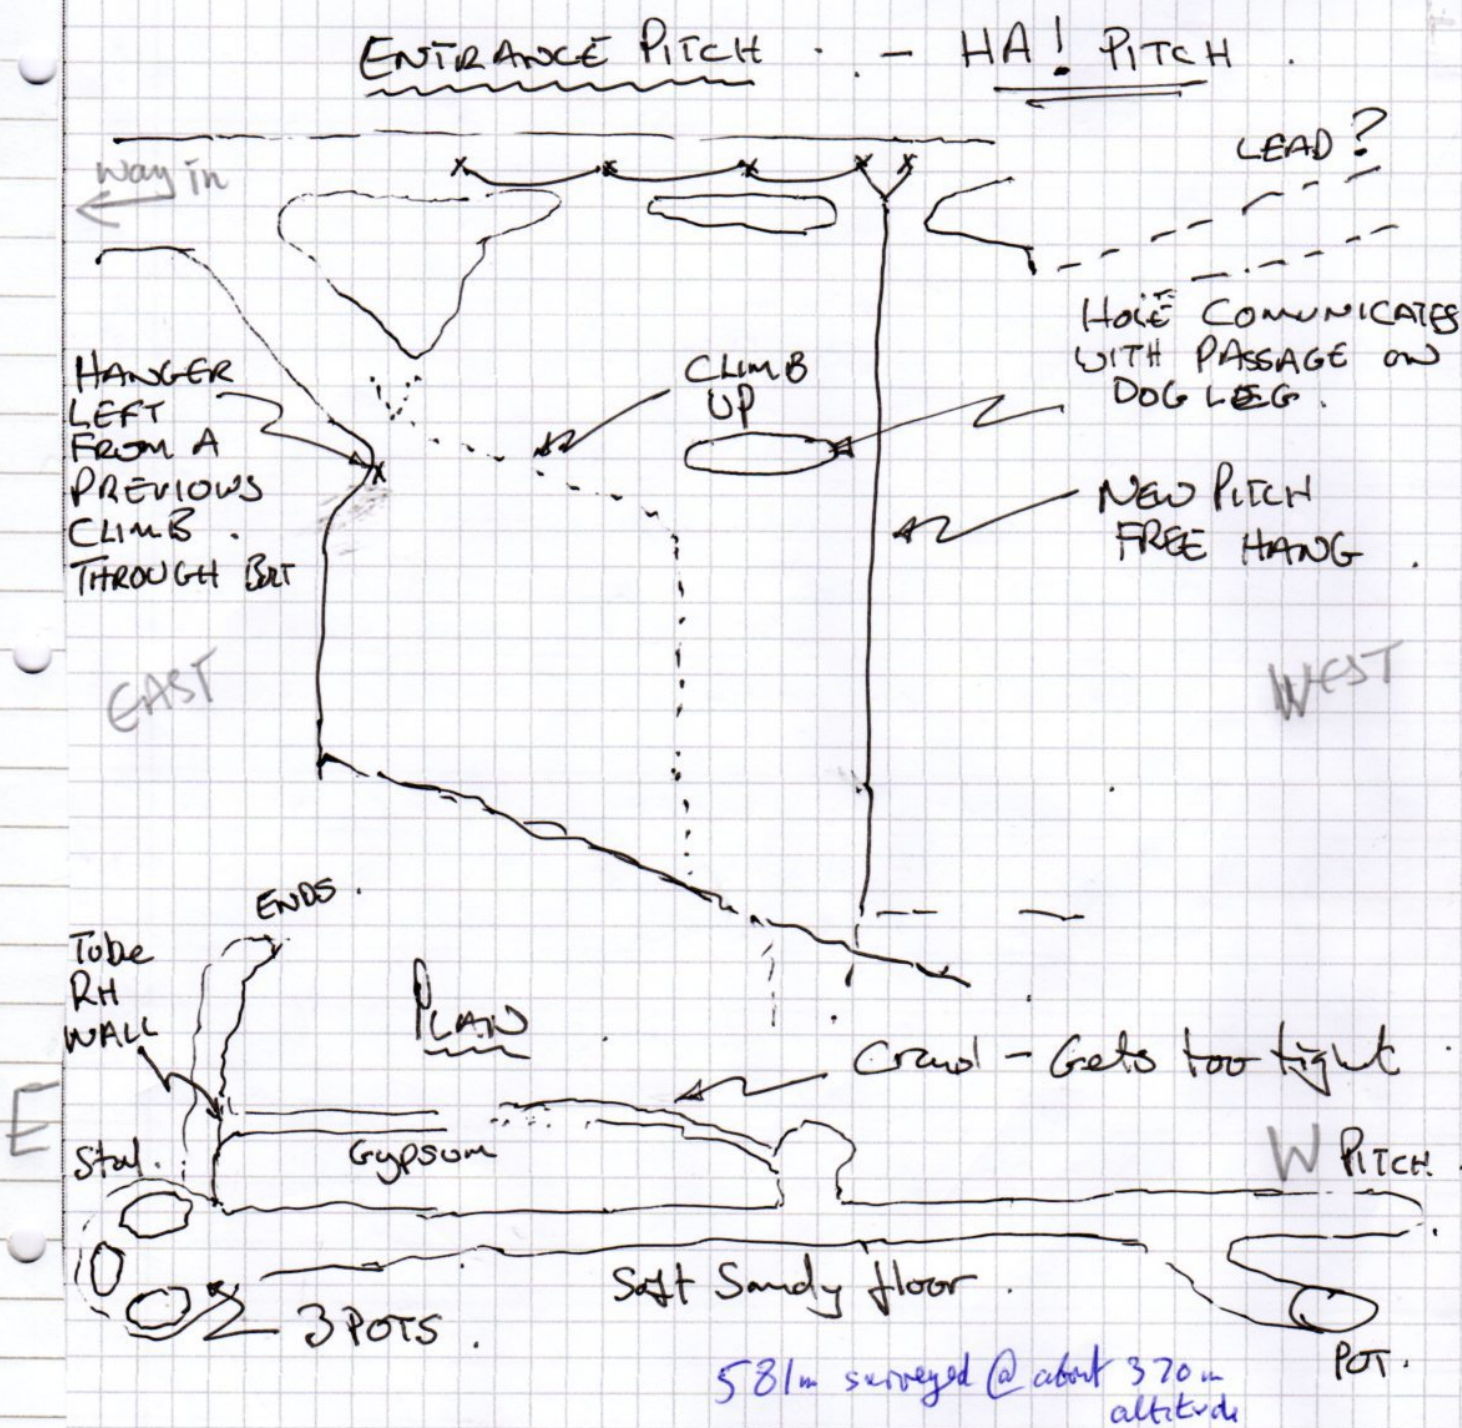 ENTRANCE PITCH - HA! PITCH
LEAD?
way in
HOLE COMUNICATES
WITH PASSAGE ON
DOG LEG.
HANGER
LEFT
FROM A
PREVIOWS
CLIMB.
THROUGH BOLT
CLIMB
UP
NEW PITCH
FREE HANG.
EAST
WEST
ENDS.
Tube
RH
WALL
PLAN
Crawl - Gets too tight
E
Stal.
Gypsum
W PITCH.
Soft Sandy floor.
3 POTS.
POT.
581m surveyed @ about 370m
altitude